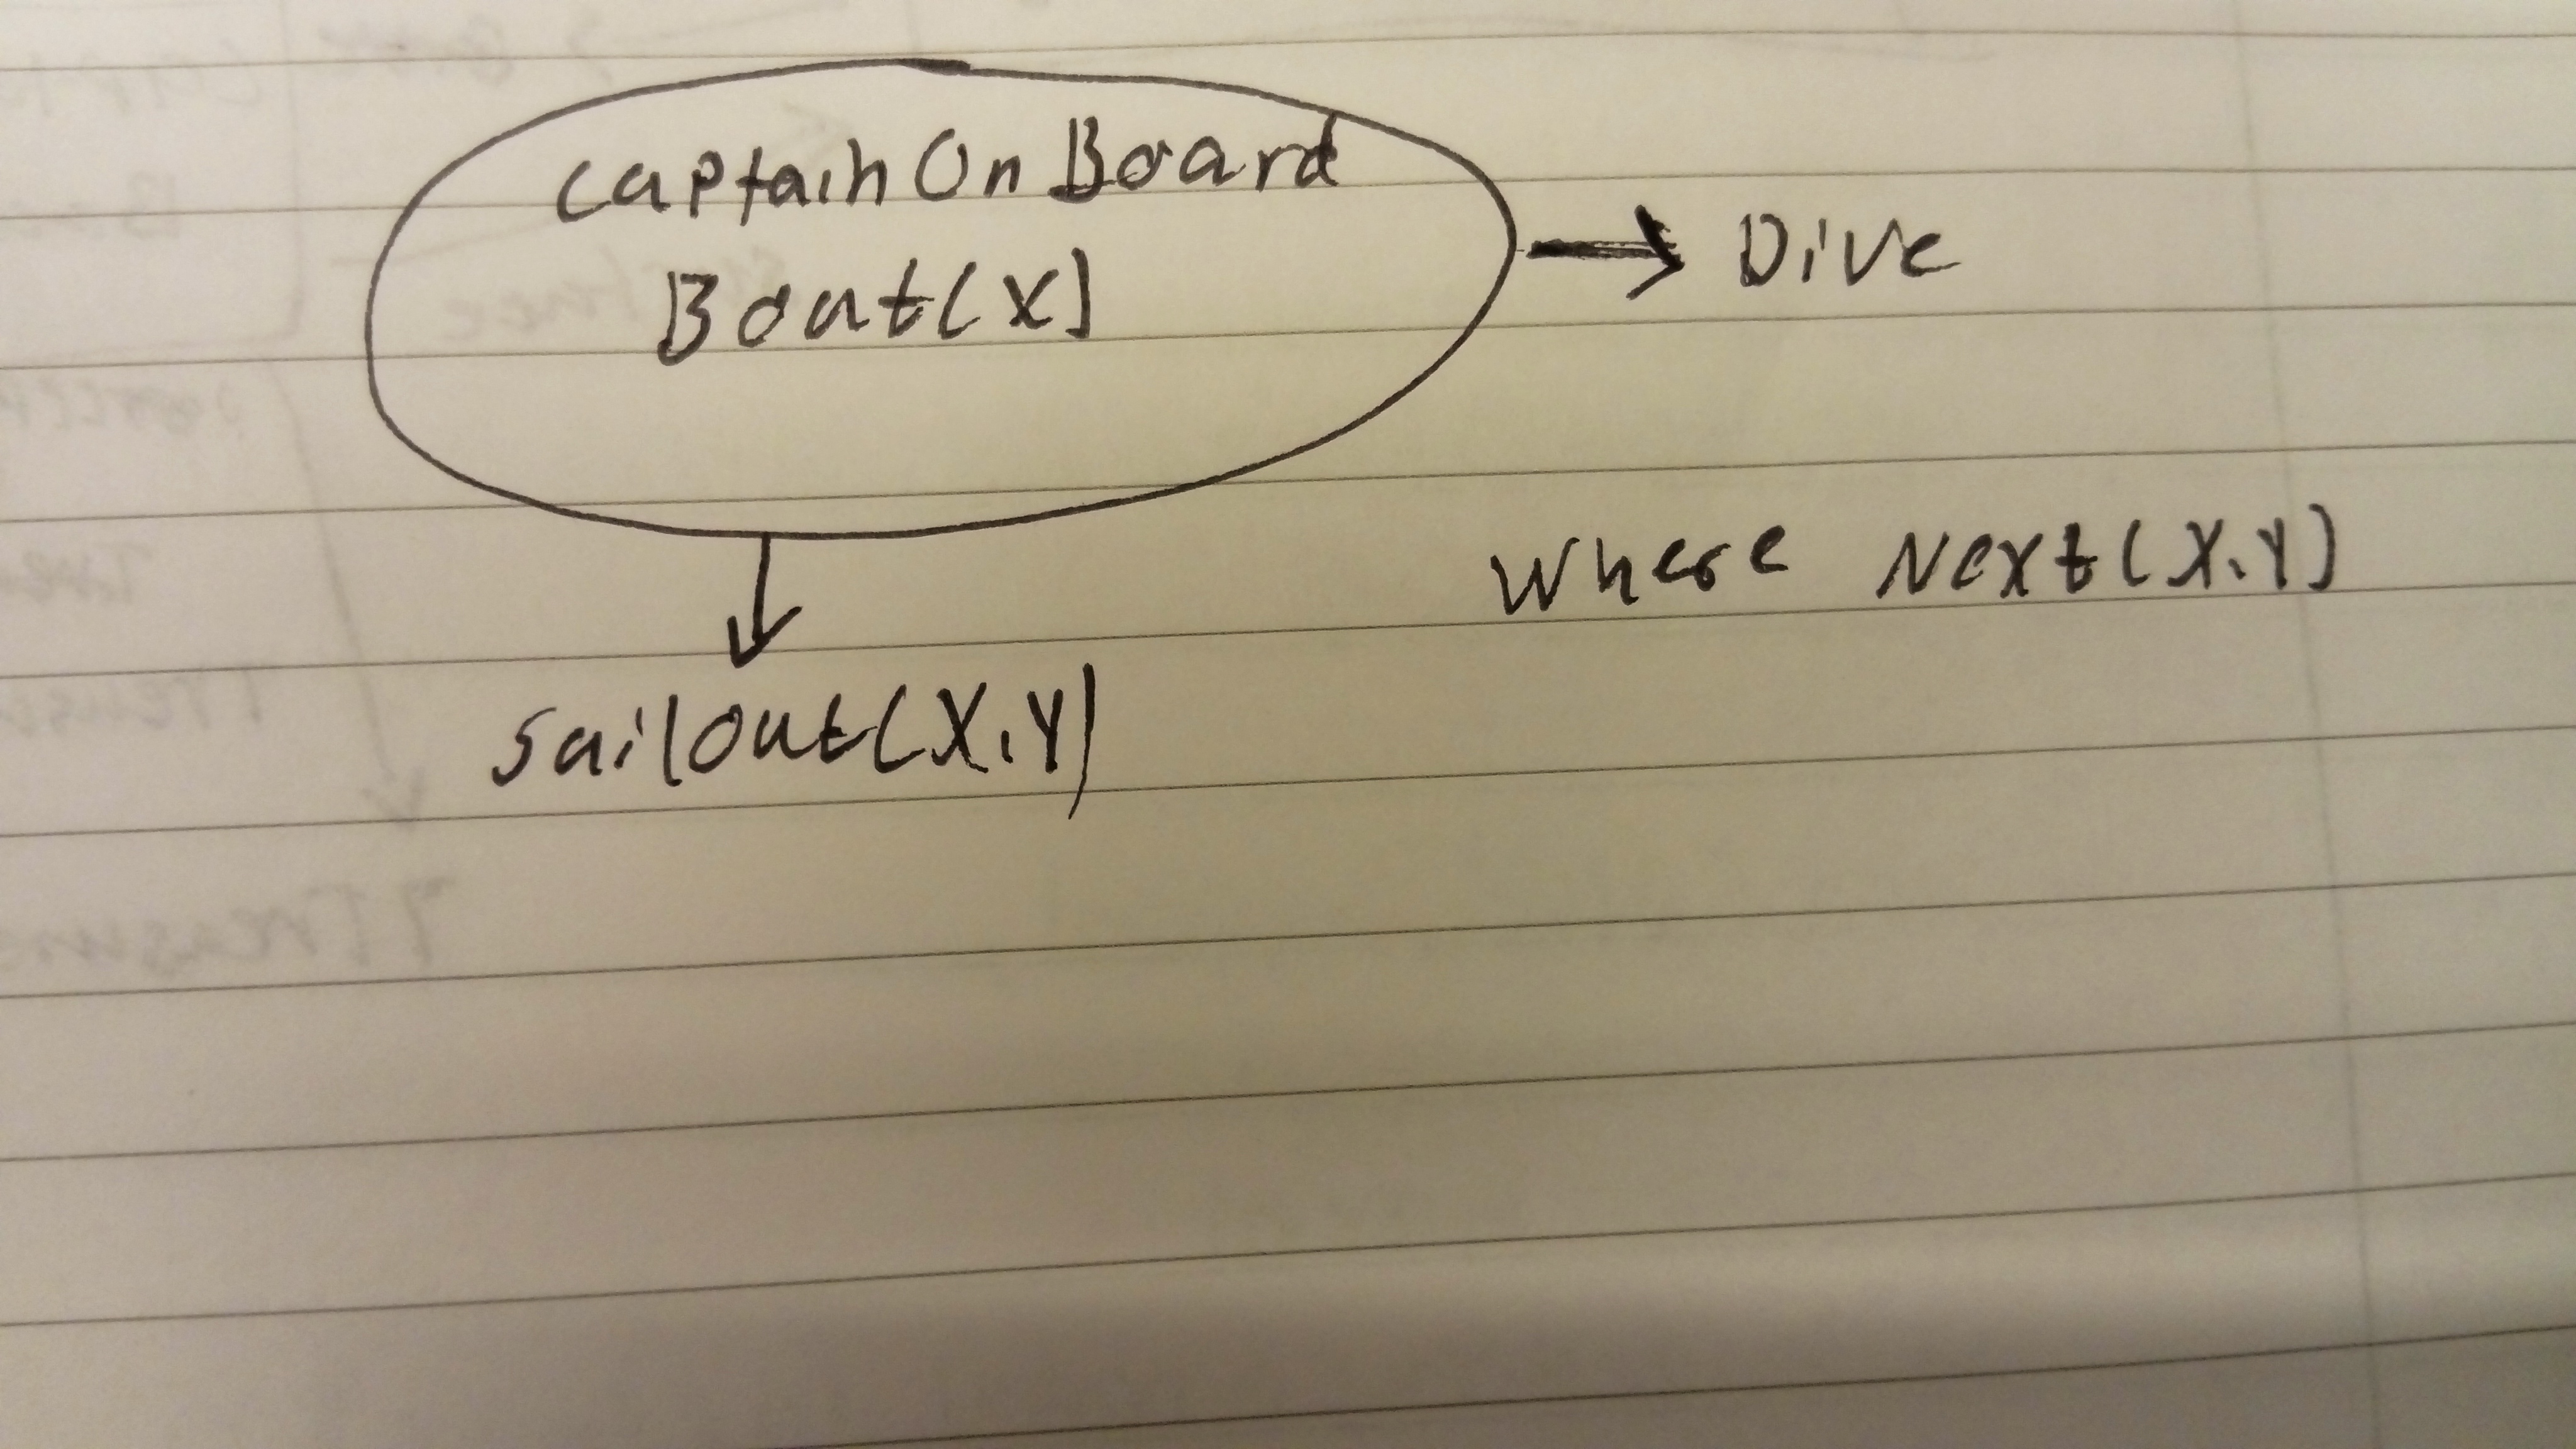 CaptainOnBoard
Boat(X)
Dive
Where Next(X,Y)
SailOut(X,Y)